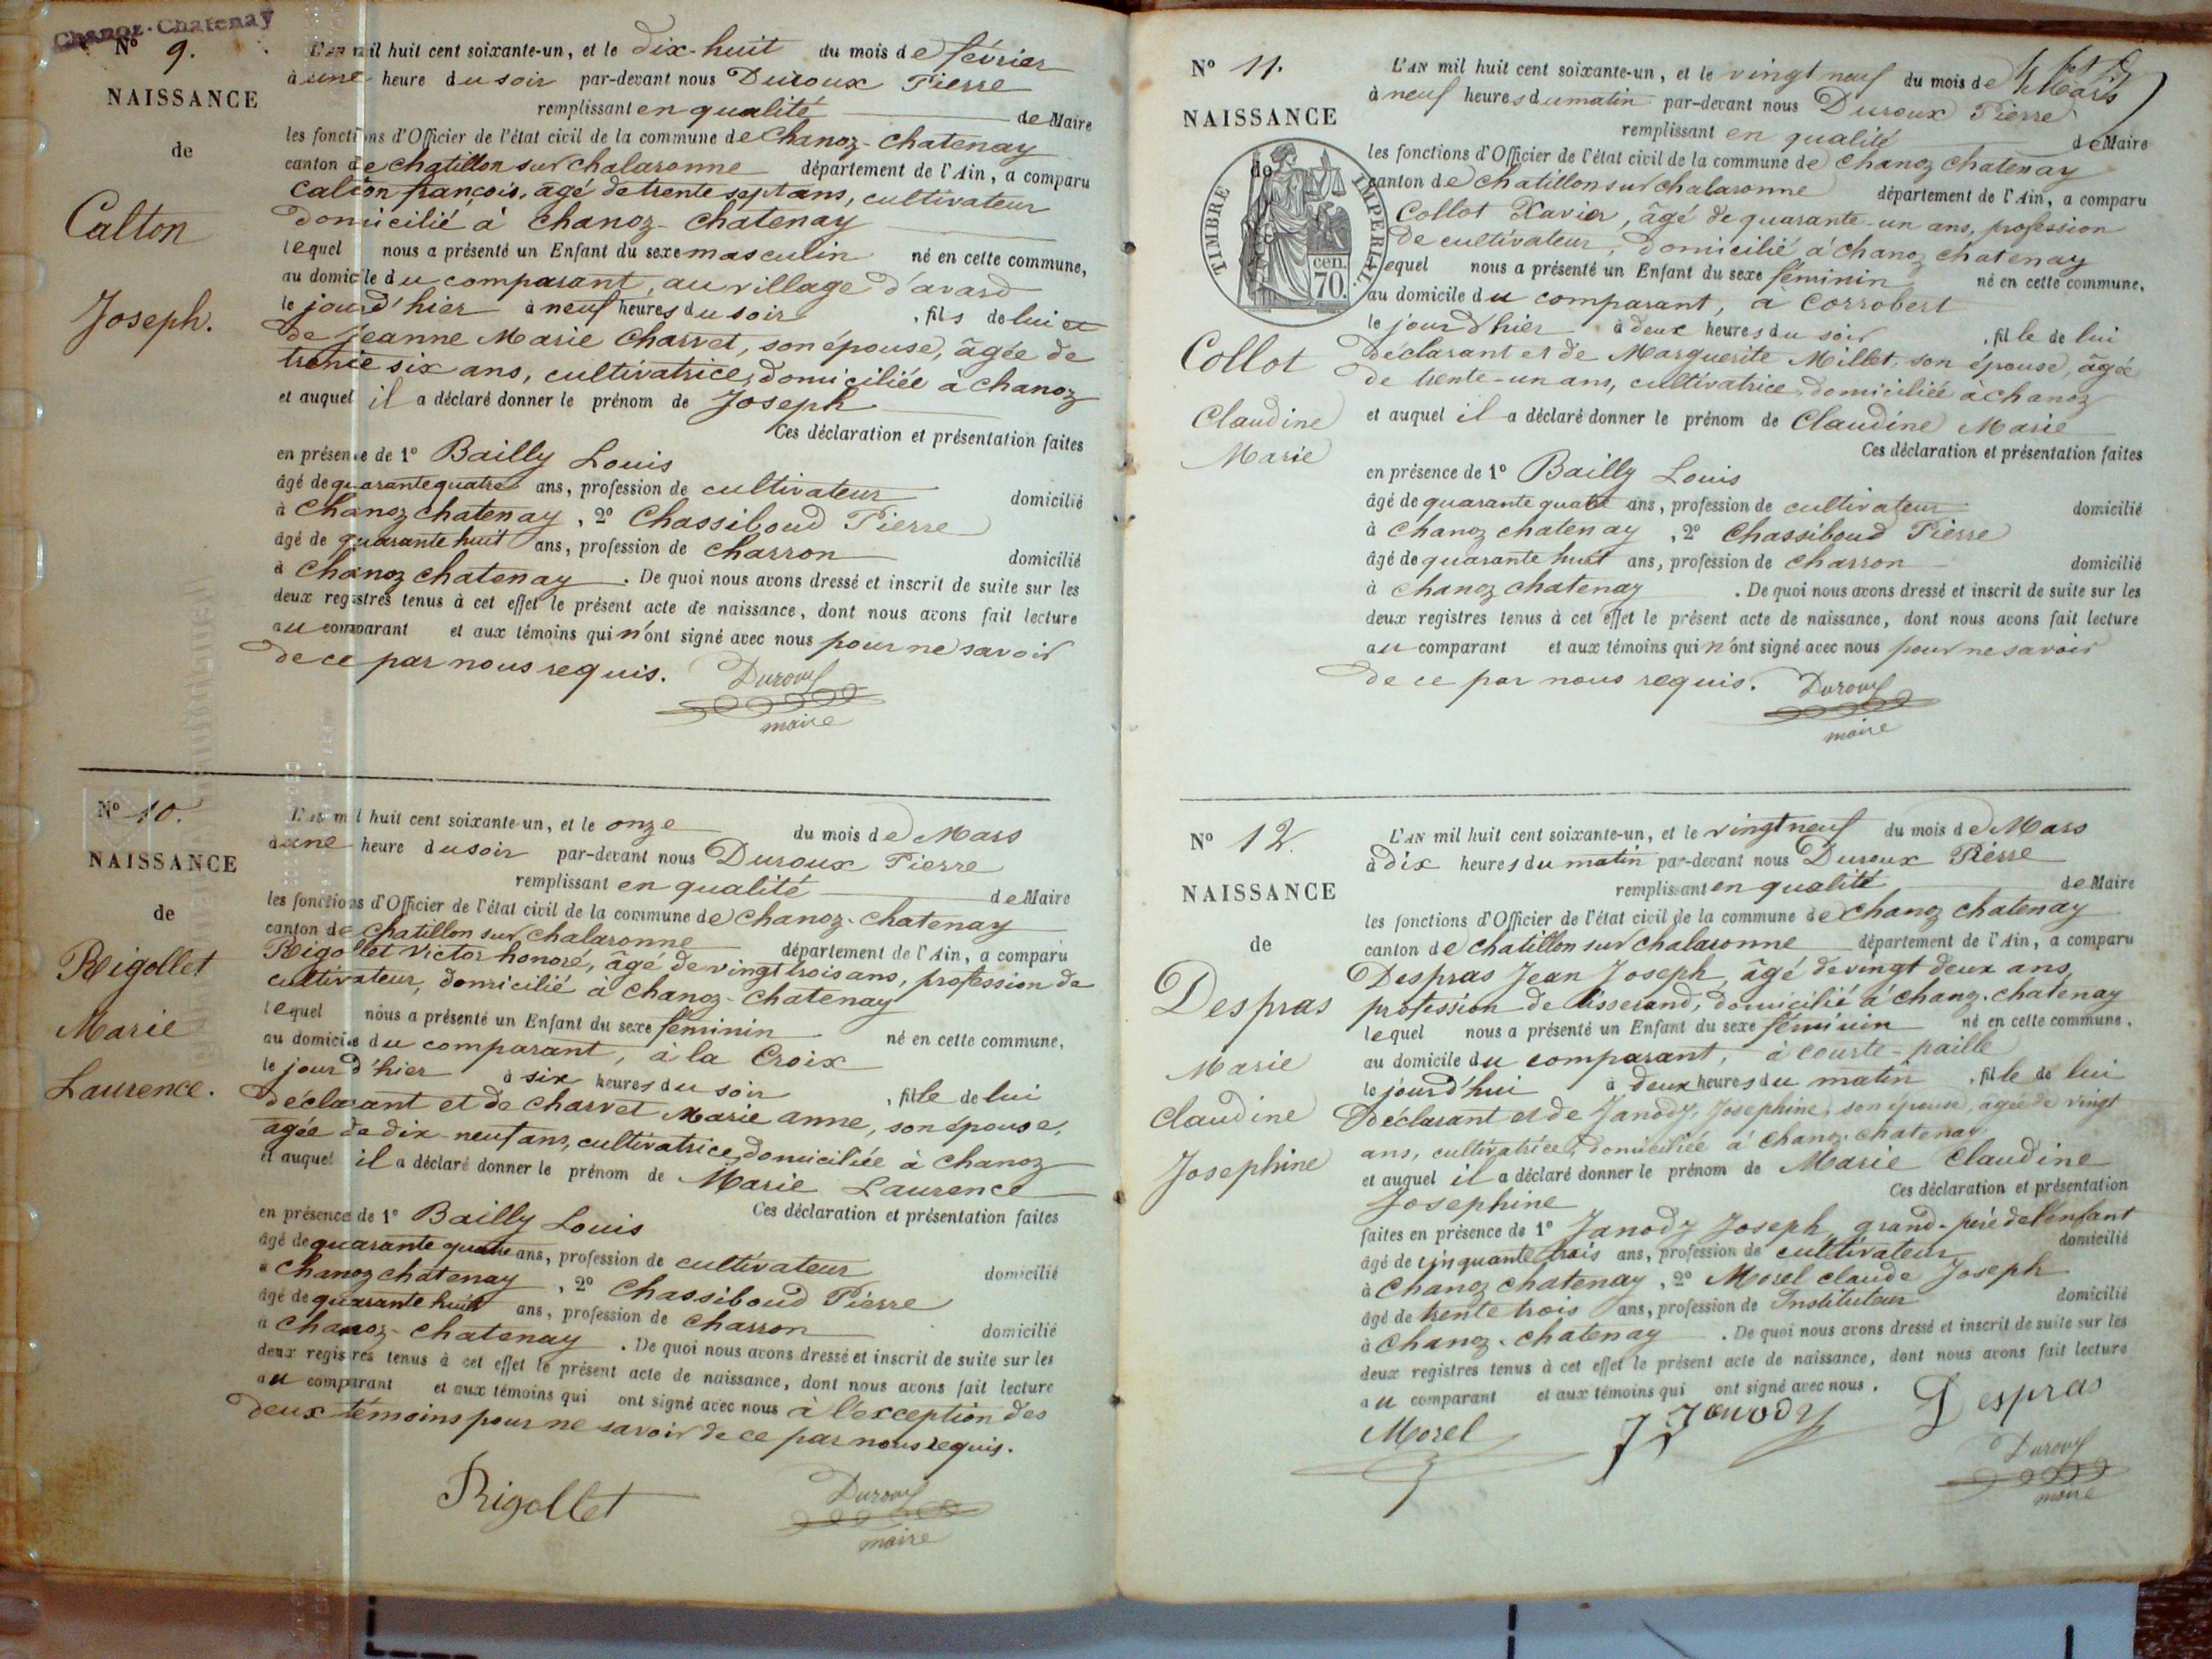 Chanoz-Chatenay
N° 9.
NAISSANCE
de
Calton
Joseph.
L'AN mil huit cent soixante-un, et le dix-huit du mois de février
à une heure du soir par-devant nous Duroux Pierre
remplissant en qualité de Maire
les fonctions d'Officier de l'état civil de la commune de Chanoz-Chatenay
canton de chatillon sur chalaronne département de l'Ain, a comparu
Calton françois, âgé de trente sept ans, cultivateur
domicilié à chanoz-chatenay
lequel nous a présenté un Enfant du sexe masculin né en cette commune,
au domicile du comparant, au village d'avard
le jour d'hier à neuf heures du soir, fils de lui et
de jeanne Marie Charvet, son épouse, âgée de
trente six ans, cultivatrice, domiciliée à chanoz
et auquel il a déclaré donner le prénom de Joseph
Ces déclaration et présentation faites
en présence de 1° Bailly Louis
âgé de quarante quatre ans, profession de cultivateur domicilié
à Chanoz chatenay, 2° Chassiboud Pierre
âgé de quarante huit ans, profession de charron domicilié
à Chanoz chatenay. De quoi nous avons dressé et inscrit de suite sur les
deux registres tenus à cet effet le présent acte de naissance, dont nous avons fait lecture
au comparant et aux témoins qui n'ont signé avec nous pour ne savoir
de ce par nous requis. Duroux
maire
N° 10.
NAISSANCE
de
Rigollet
Marie
Laurence.
L'AN mil huit cent soixante-un, et le onze du mois de Mars
à une heure du soir par-devant nous Duroux Pierre
remplissant en qualité de Maire
les fonctions d'Officier de l'état civil de la commune de Chanoz-Chatenay
canton de chatillon sur chalaronne département de l'Ain, a comparu
Rigollet Victor honoré, âgé de vingt trois ans, profession de
cultivateur, domicilié à Chanoz-Chatenay
lequel nous a présenté un Enfant du sexe féminin né en cette commune,
au domicile du comparant, à la Croix
le jour d'hier à six heures du soir, fille de lui
déclarant et de Charvet Marie anne, son épouse,
agée de dix-neuf ans, cultivatrice, domiciliée à Chanoz
et auquel il a déclaré donner le prénom de Marie Laurence
Ces déclaration et présentation faites
en présence de 1° Bailly Louis
âgé de quarante quatre ans, profession de cultivateur domicilié
à Chanoz chatenay, 2° Chassiboud Pierre
âgé de quarante huit ans, profession de Charron domicilié
à Chanoz-chatenay. De quoi nous avons dressé et inscrit de suite sur les
deux registres tenus à cet effet le présent acte de naissance, dont nous avons fait lecture
au comparant et aux témoins qui ont signé avec nous à l'exception des
deux témoins pour ne savoir de ce par nous requis.
Rigollet Duroux
maire
N° 11.
NAISSANCE
de
TIMBRE IMPERIAL
70 cen.
Collot
Claudine
Marie
L'AN mil huit cent soixante-un, et le vingt neuf du mois de Mars
à neuf heures du matin par-devant nous Duroux Pierre
remplissant en qualité de Maire
les fonctions d'Officier de l'état civil de la commune de Chanoz chatenay
canton de chatillon sur chalaronne département de l'Ain, a comparu
Collot Xavier, âgé de quarante-un ans, profession
de cultivateur, domicilié à chanoz chatenay
lequel nous a présenté un Enfant du sexe féminin né en cette commune,
au domicile du comparant, a Corrobert
le jour d'hier à deux heures du soir, fille de lui
déclarant et de Marguerite Millet, son épouse, âgée
de trente-un ans, cultivatrice, domiciliée à chanoz
et auquel il a déclaré donner le prénom de Claudine Marie
Ces déclaration et présentation faites
en présence de 1° Bailly Louis
âgé de quarante quatre ans, profession de cultivateur domicilié
à Chanoz chatenay, 2° Chassiboud Pierre
âgé de quarante huit ans, profession de charron domicilié
à chanoz chatenay. De quoi nous avons dressé et inscrit de suite sur les
deux registres tenus à cet effet le présent acte de naissance, dont nous avons fait lecture
au comparant et aux témoins qui n'ont signé avec nous pour ne savoir
de ce par nous requis. Duroux
maire
N° 12.
NAISSANCE
de
Despras
Marie
Claudine
Josephine
L'AN mil huit cent soixante-un, et le vingt neuf du mois de Mars
à dix heures du matin par-devant nous Duroux Pierre
remplissant en qualité de Maire
les fonctions d'Officier de l'état civil de la commune de Chanoz chatenay
canton de chatillon sur chalaronne département de l'Ain, a comparu
Despras Jean Joseph, âgé de vingt deux ans,
profession de tisserand, domicilié à chanoz-chatenay
lequel nous a présenté un Enfant du sexe féminin né en cette commune,
au domicile du comparant, à courte-paille
le jourd'hui à deux heures du matin, fille de lui
déclarant et de Janody Josephine, son épouse, âgée de vingt
ans, cultivatrice, domiciliée à Chanoz-chatenay
et auquel il a déclaré donner le prénom de Marie Claudine
Josephine Ces déclaration et présentation
faites en présence de 1° Janody Joseph, grand-père de l'enfant
âgé de cinquante trois ans, profession de cultivateur domicilié
à Chanoz chatenay, 2° Morel claude Joseph
âgé de trente trois ans, profession de Instituteur domicilié
à Chanoz-chatenay. De quoi nous avons dressé et inscrit de suite sur les
deux registres tenus à cet effet le présent acte de naissance, dont nous avons fait lecture
au comparant et aux témoins qui ont signé avec nous.
Morel J Janody Despras
Duroux
maire